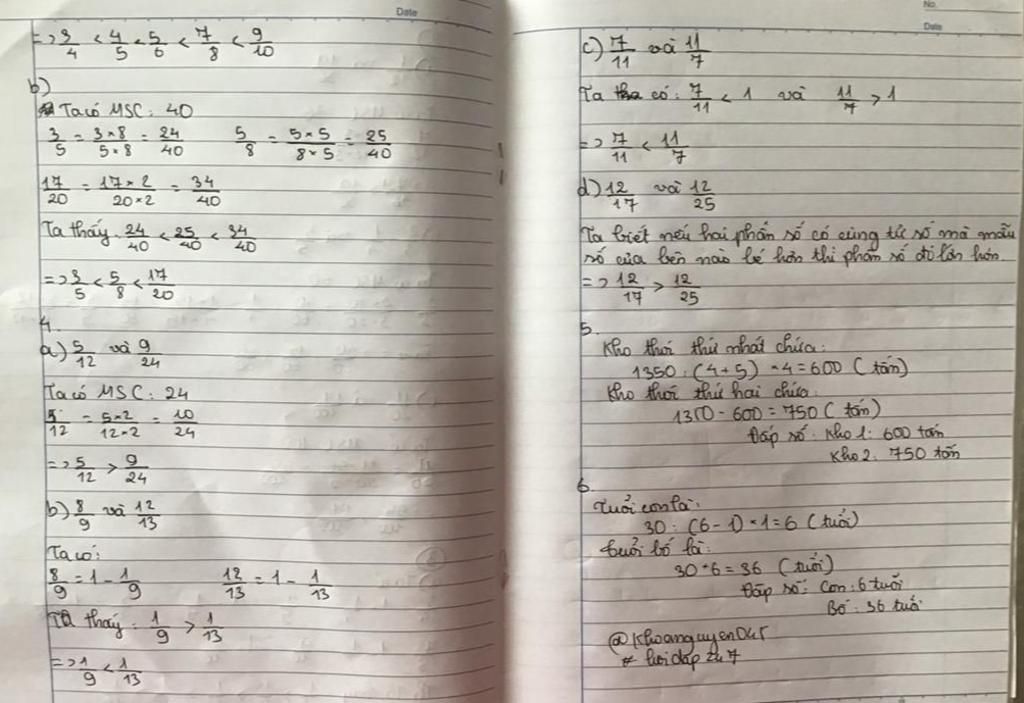 Date
=> 3/4 < 4/5 < 5/6 < 7/8 < 9/10
b)
Ta có MSC: 40
3/5 = 3×8/5×8 = 24/40 5/8 = 5×5/8×5 = 25/40
17/20 = 17×2/20×2 = 34/40
Ta thấy 24/40 < 25/40 < 34/40
=> 3/5 < 5/8 < 17/20
4.
a) 5/12 và 9/24
Ta có MSC: 24
5/12 = 5×2/12×2 = 10/24
=> 5/12 > 9/24
b) 8/9 và 12/13
Ta có:
8/9 = 1 - 1/9 12/13 = 1 - 1/13
Ta thấy: 1/9 > 1/13
=> 1/9 < 1/13
No.
Date
c) 7/11 và 11/7
Ta có: 7/11 < 1 và 11/7 > 1
=> 7/11 < 11/7
d) 12/17 và 12/25
Ta biết nếu hai phân số có cùng tử số mà mẫu
số của bên nào bé hơn thì phân số đó lớn hơn
=> 12/17 > 12/25
5.
Kho thứ nhất chứa:
1350 : (4+5) × 4 = 600 (tấn)
Kho thứ hai chứa:
- 600 = 750 (tấn)
Đáp số: Kho 1: 600 tấn
Kho 2: 750 tấn
6.
Tuổi con là:
30 : (6-1) × 1 = 6 (tuổi)
tuổi bố là:
30 + 6 = 36 (tuổi)
Đáp số: Con: 6 tuổi
Bố: 36 tuổi
# hoidap247